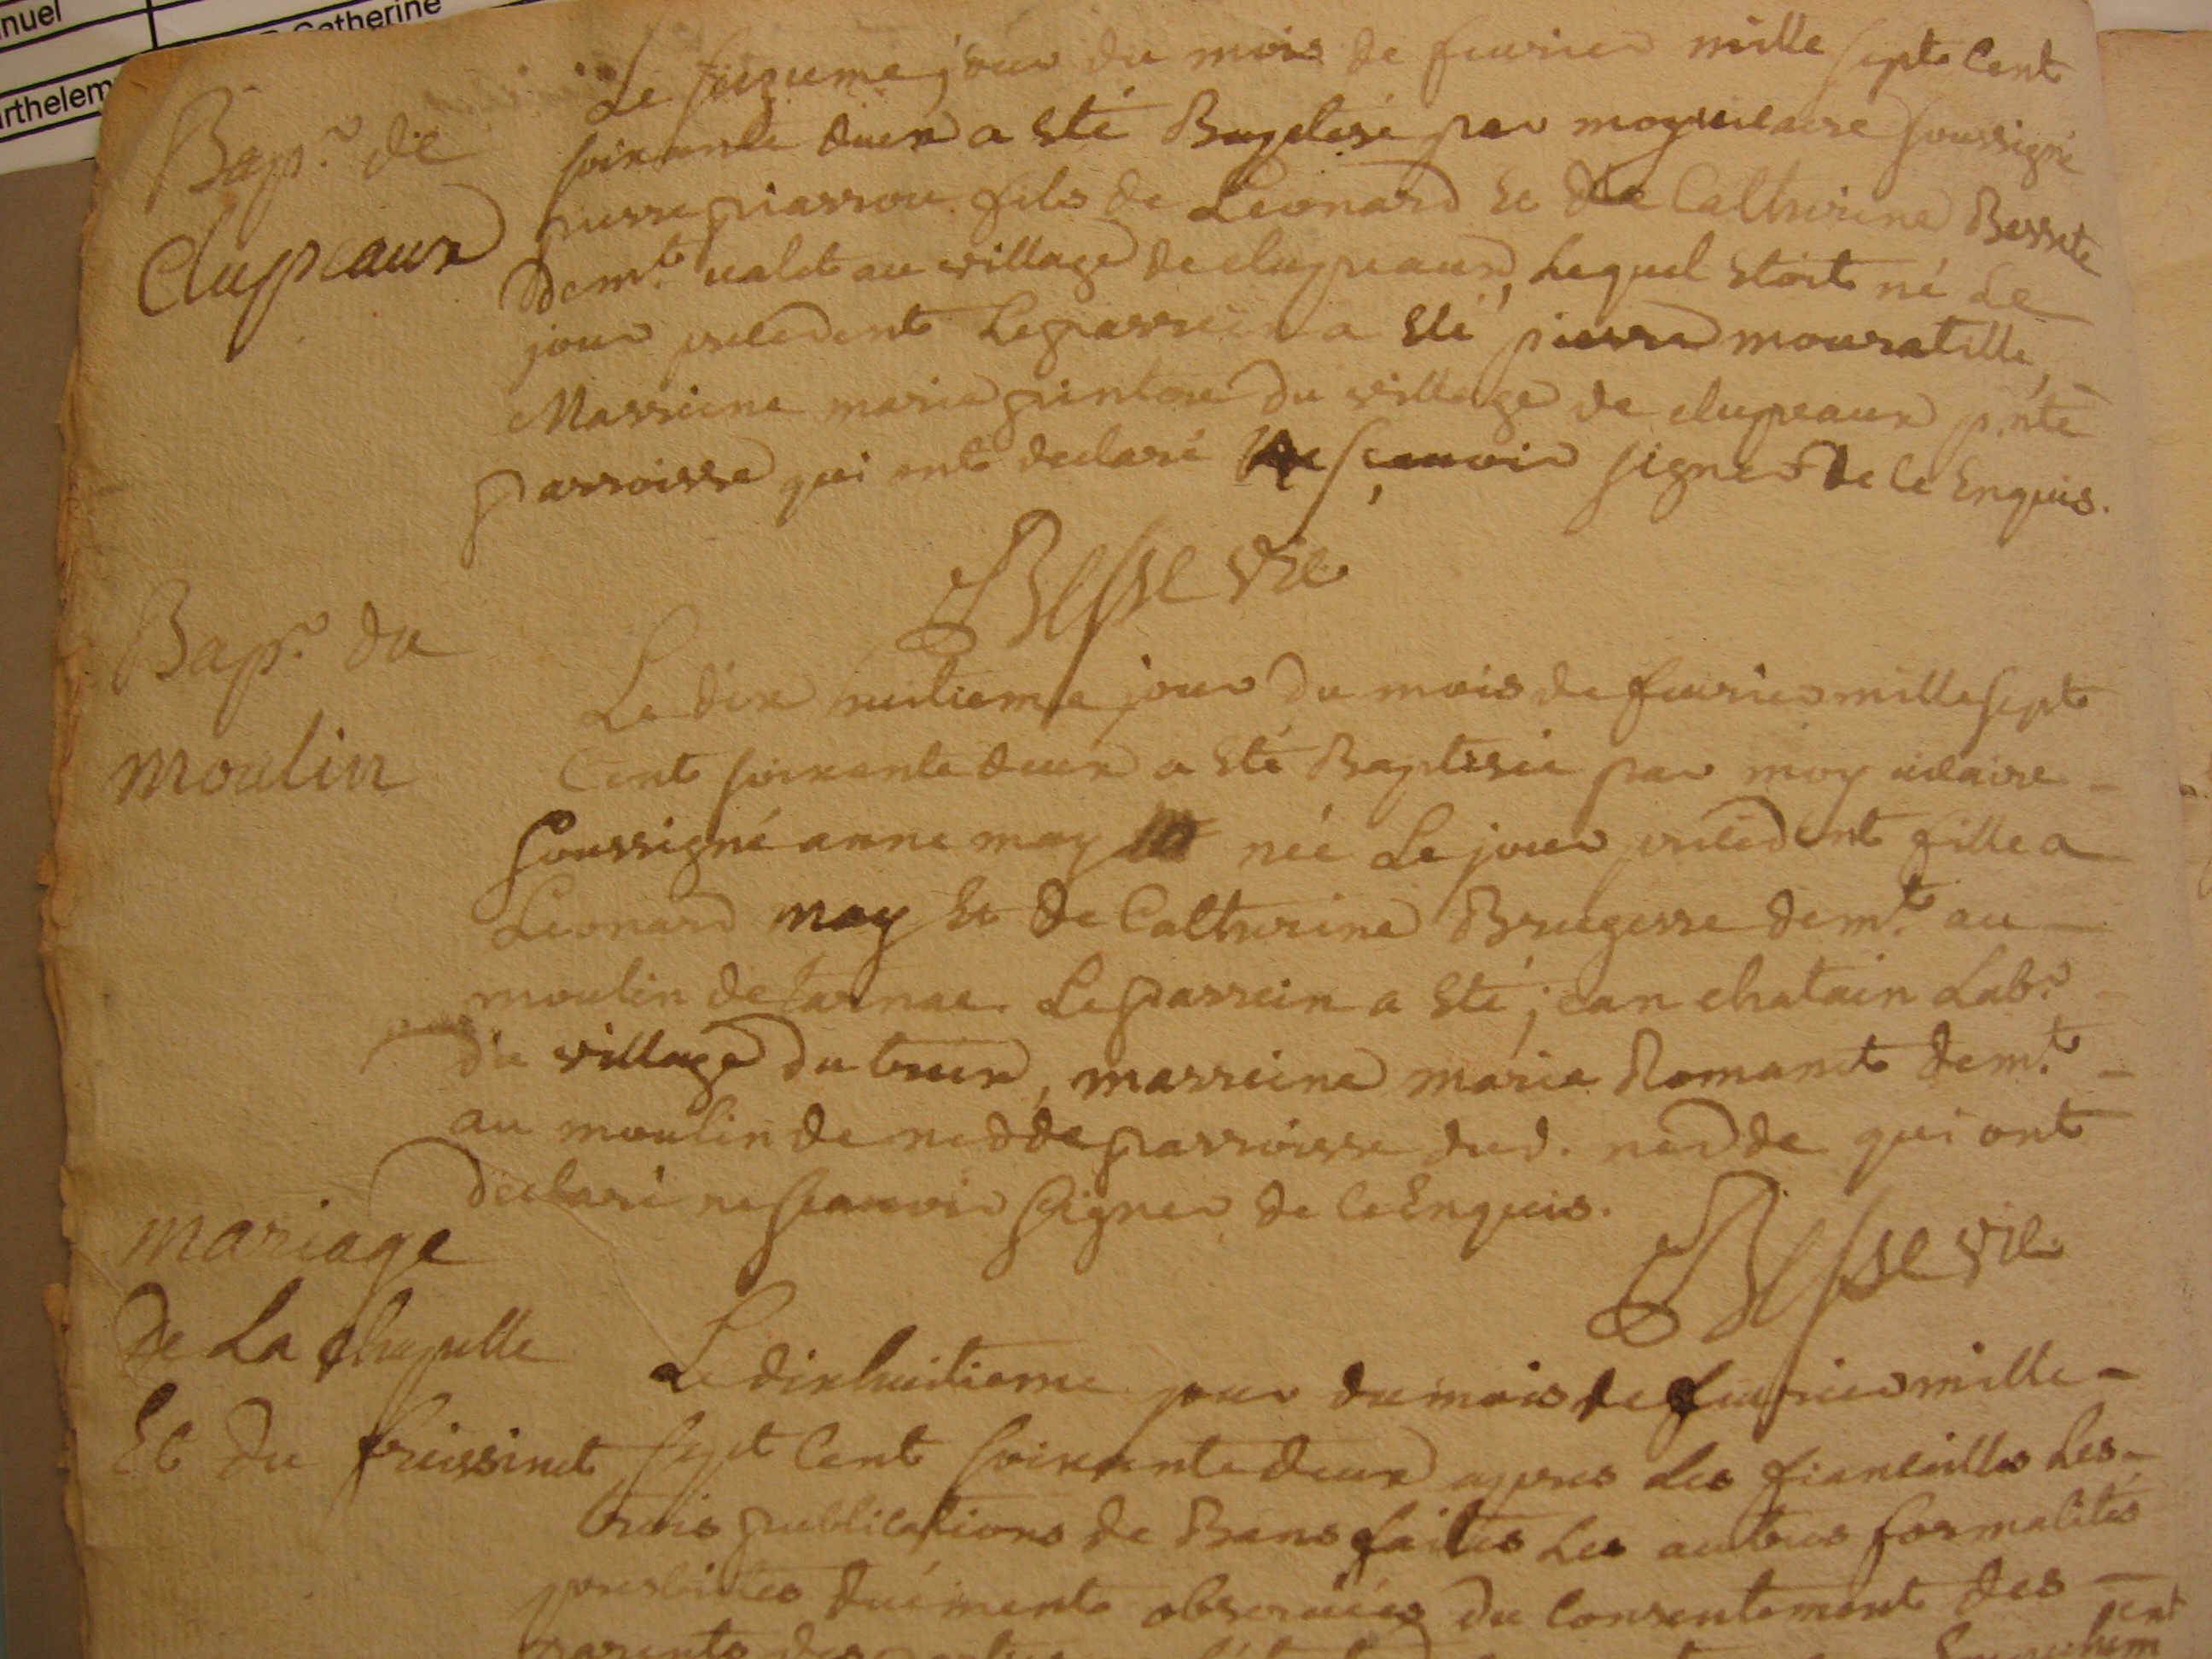 nuel
Catherine
rthelem
Bapr. de
Clupeaux
Le seizieme jour du mois de fevrier mille sept Cent
soixante deux a Eté Baptisé par moy vicaire soussigné
pierre piarrou fils de Leonard et de Catherine Bessete
Demt. valet au village de clupeaux, Lequel Etoit né Le
jour precedent Le parrein a Eté pierre mouratille,
Marreine marie pintou du village de clupeaux pnte
parroisse qui ont declaré ne sçauoir signer de ce Enquis.
Besse vre
Bapr. du
moulin
Le dix huitieme jour du mois de feurier mille sept
Cent soixante deux a Eté Baptisée par moy vicaire
soussigné anne may née Le jour precedent fille a
Leonard may Et de Catherine Brugerre demt. au
moulin de tarnac. Le parrein a Eté jean chatain Labr.
du village du trux, marreine marie Romanet demt.
au moulin de nedde parroisse dud. nedde qui ont
declaré ne sçauoir signer de ce Enquis.
Besse vre
mariage
de La chapelle
Et du freissinet
Le dix huitieme jour du mois de feurier mille
sept Cent soixante deux apres Les fiancailles Les
trois publications de Bans faites Les autres formalités
prescrites duëment observées du Consentement des
parents des